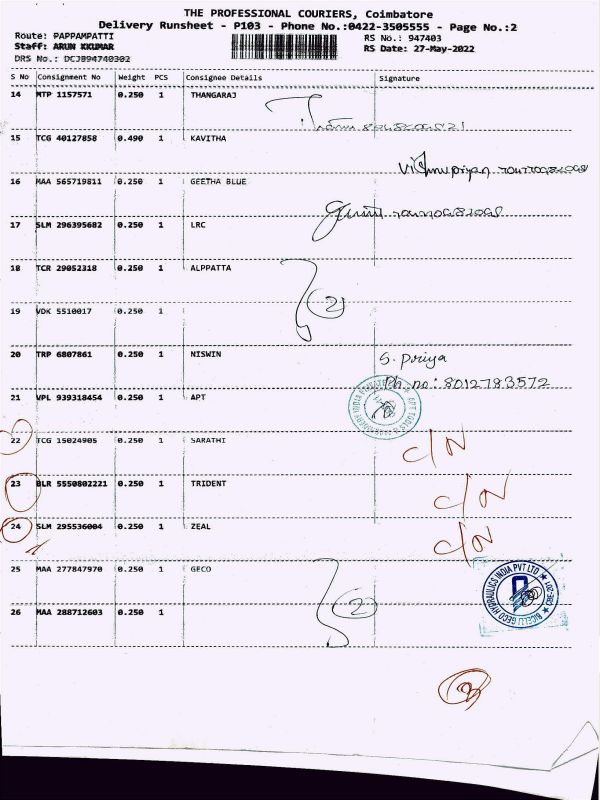 THE PROFESSIONAL COURIERS, Coimbatore
Delivery Runsheet - P103 - Phone No.:0422-3505555 - Page No.:2
Route: PAPPAMPATTI RS No.: 947403
Staff: ARUN KKUMAR RS Date: 27-May-2022
DRS No.: DCJB94740302
S No Consignment No Weight PCS Consignee Details Signature
14 MTP 1157571 0.250 1 THANGARAJ
15 TCG 40127858 0.490 1 KAVITHA
Vishnupriya
16 MAA 565719811 0.250 1 GEETHA BLUE
17 SLM 296395682 0.250 1 LRC
18 TCR 29052318 0.250 1 ALPPATTA
2
19 VDK 5510017 0.250 1
20 TRP 6807861 0.250 1 NISWIN S. Priya
Ph no: 8012783572
21 VPL 939318454 0.250 1 APT
22 TCG 15024905 0.250 1 SARATHI C/N
23 BLR 5550802221 0.250 1 TRIDENT C/N
24 SLM 295536004 0.250 1 ZEAL C/N
25 MAA 277847970 0.250 1 GECO
BICELLI GECO HYDRAULICS INDIA PVT LTD
2
26 MAA 288712603 0.250 1